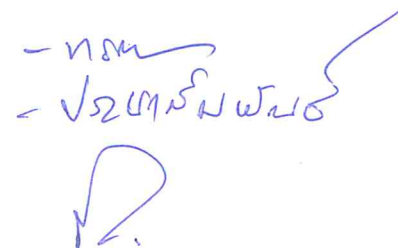 - ทราบ
- ประชาสัมพันธ์